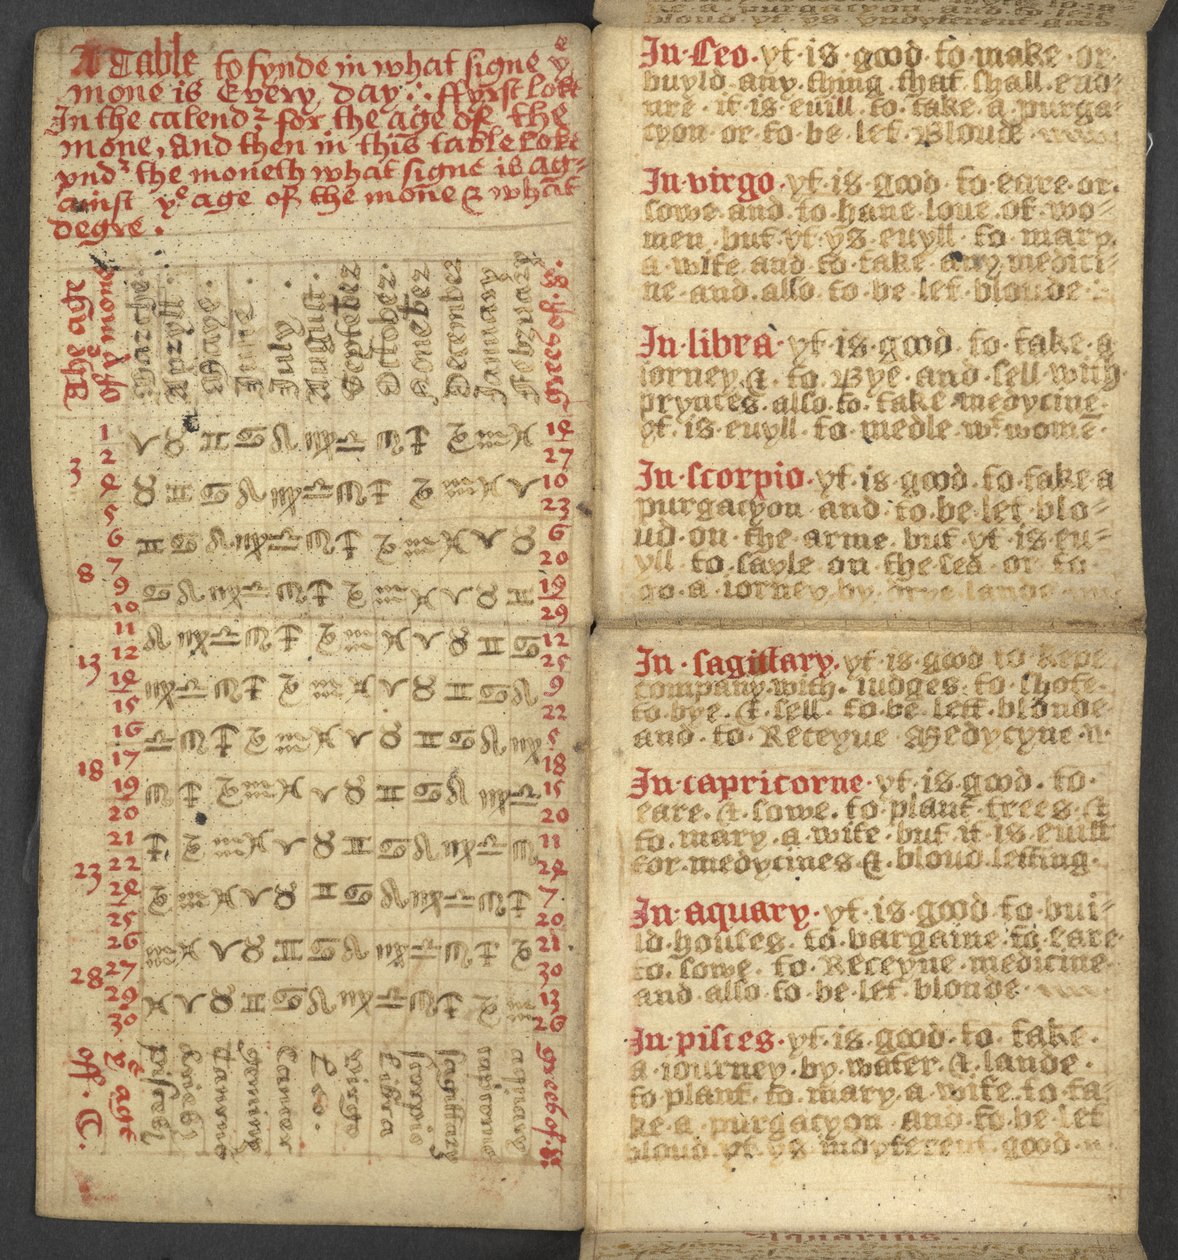 A Table to fynde in what signe yͤ
mone is Every day: ffyrst loke
In the calendꝛ for the age of the
mone, And then in this table loke
vndꝛ the moneth what signe is ag=
ainst yͤ age of the mone & what
degre.
The age of yͤ mone
Marche
Apryll
Maye
June
July
August
September
October
Nouember
December
January
February
Grees of. S.
1 ♈ ♉ ♊ ♋ ♌ ♍ ♎ ♏ ♐ ♑ ♒ ♓ 14
2 27
3
4 ♉ ♊ ♋ ♌ ♍ ♎ ♏ ♐ ♑ ♒ ♓ ♈ 10
5 23
6 ♊ ♋ ♌ ♍ ♎ ♏ ♐ ♑ ♒ ♓ ♈ ♉ 6
7 20
8
9 ♋ ♌ ♍ ♎ ♏ ♐ ♑ ♒ ♓ ♈ ♉ ♊ 19
10 29
11 ♌ ♍ ♎ ♏ ♐ ♑ ♒ ♓ ♈ ♉ ♊ ♋ 12
12 25
13
14 ♍ ♎ ♏ ♐ ♑ ♒ ♓ ♈ ♉ ♊ ♋ ♌ 9
15 22
16 ♎ ♏ ♐ ♑ ♒ ♓ ♈ ♉ ♊ ♋ ♌ ♍ 5
17 18
18
19 ♏ ♐ ♑ ♒ ♓ ♈ ♉ ♊ ♋ ♌ ♍ ♎ 15
20 20
21 ♐ ♑ ♒ ♓ ♈ ♉ ♊ ♋ ♌ ♍ ♎ ♏ 11
22 24
23
24 ♑ ♒ ♓ ♈ ♉ ♊ ♋ ♌ ♍ ♎ ♏ ♐ 7
25 20
26 ♒ ♓ ♈ ♉ ♊ ♋ ♌ ♍ ♎ ♏ ♐ ♑ 21
27 30
28
29 ♓ ♈ ♉ ♊ ♋ ♌ ♍ ♎ ♏ ♐ ♑ ♒ 13
30 26
yͤ age
of yͤ
pisces
aries
taurus
gemini
cancer
Leo
virgo
Libra
scorpio
sagittary
capricorne
aquary
In·Leo·yt·is·good·to·make·or·
buyld·any·thing·that·shall·end=
ure·it·is·euill·to·take·a·purga=
cyon·or·to·be·let·Bloude
In·virgo·yt·is·good·to·eare·or·
sowe·and·to·haue·loue·of·wo=
men·but·yt·ys·euyll·to·mary·
a·wife·and·to·take·any·medici=
ne·and·also·to·be·let·bloude:
In·libra·yt·is·good·to·take·a
iorney·&·to·Bye·and·sell·with·
prynces·also·to·take·medycine·
yt·is·euyll·to·medle·wᵗ·womē·
In·scorpio·yt·is·good·to·take·a
purgacyon·and·to·be·let·blo=
ud·on·the·arme·but·yt·is·eu=
yll·to·sayle·on·the·sea·or·to·
go·a·iorney·by·drye·lande
In·sagittary·yt·is·good·to·kepe
company·with·iudges·to·shote·
to·bye·&·sell·to·be·lett·bloude
and·to·Receyue·Medycyne
In·capricorne·yt·is·good·to·
eare·&·sowe·to·plant·trees·&
to·mary·a·wife·but·it·is·euill
for·medycines·&·bloud·letting·
In·aquary·yt·is·good·to·bui=
ld·houses·to·bargaine·to·eare·
to·sowe·to·Receyue·medicine·
and·also·to·be·let·bloude
In·pisces·yt·is·good·to·take·
a·iourney·by·water·&·lande·
to·plant·to·mary·a·wife·to·ta=
ke·a·purgacyon·And·to·be·let
bloud·yt·ys·indyferent·good
Aquarius.